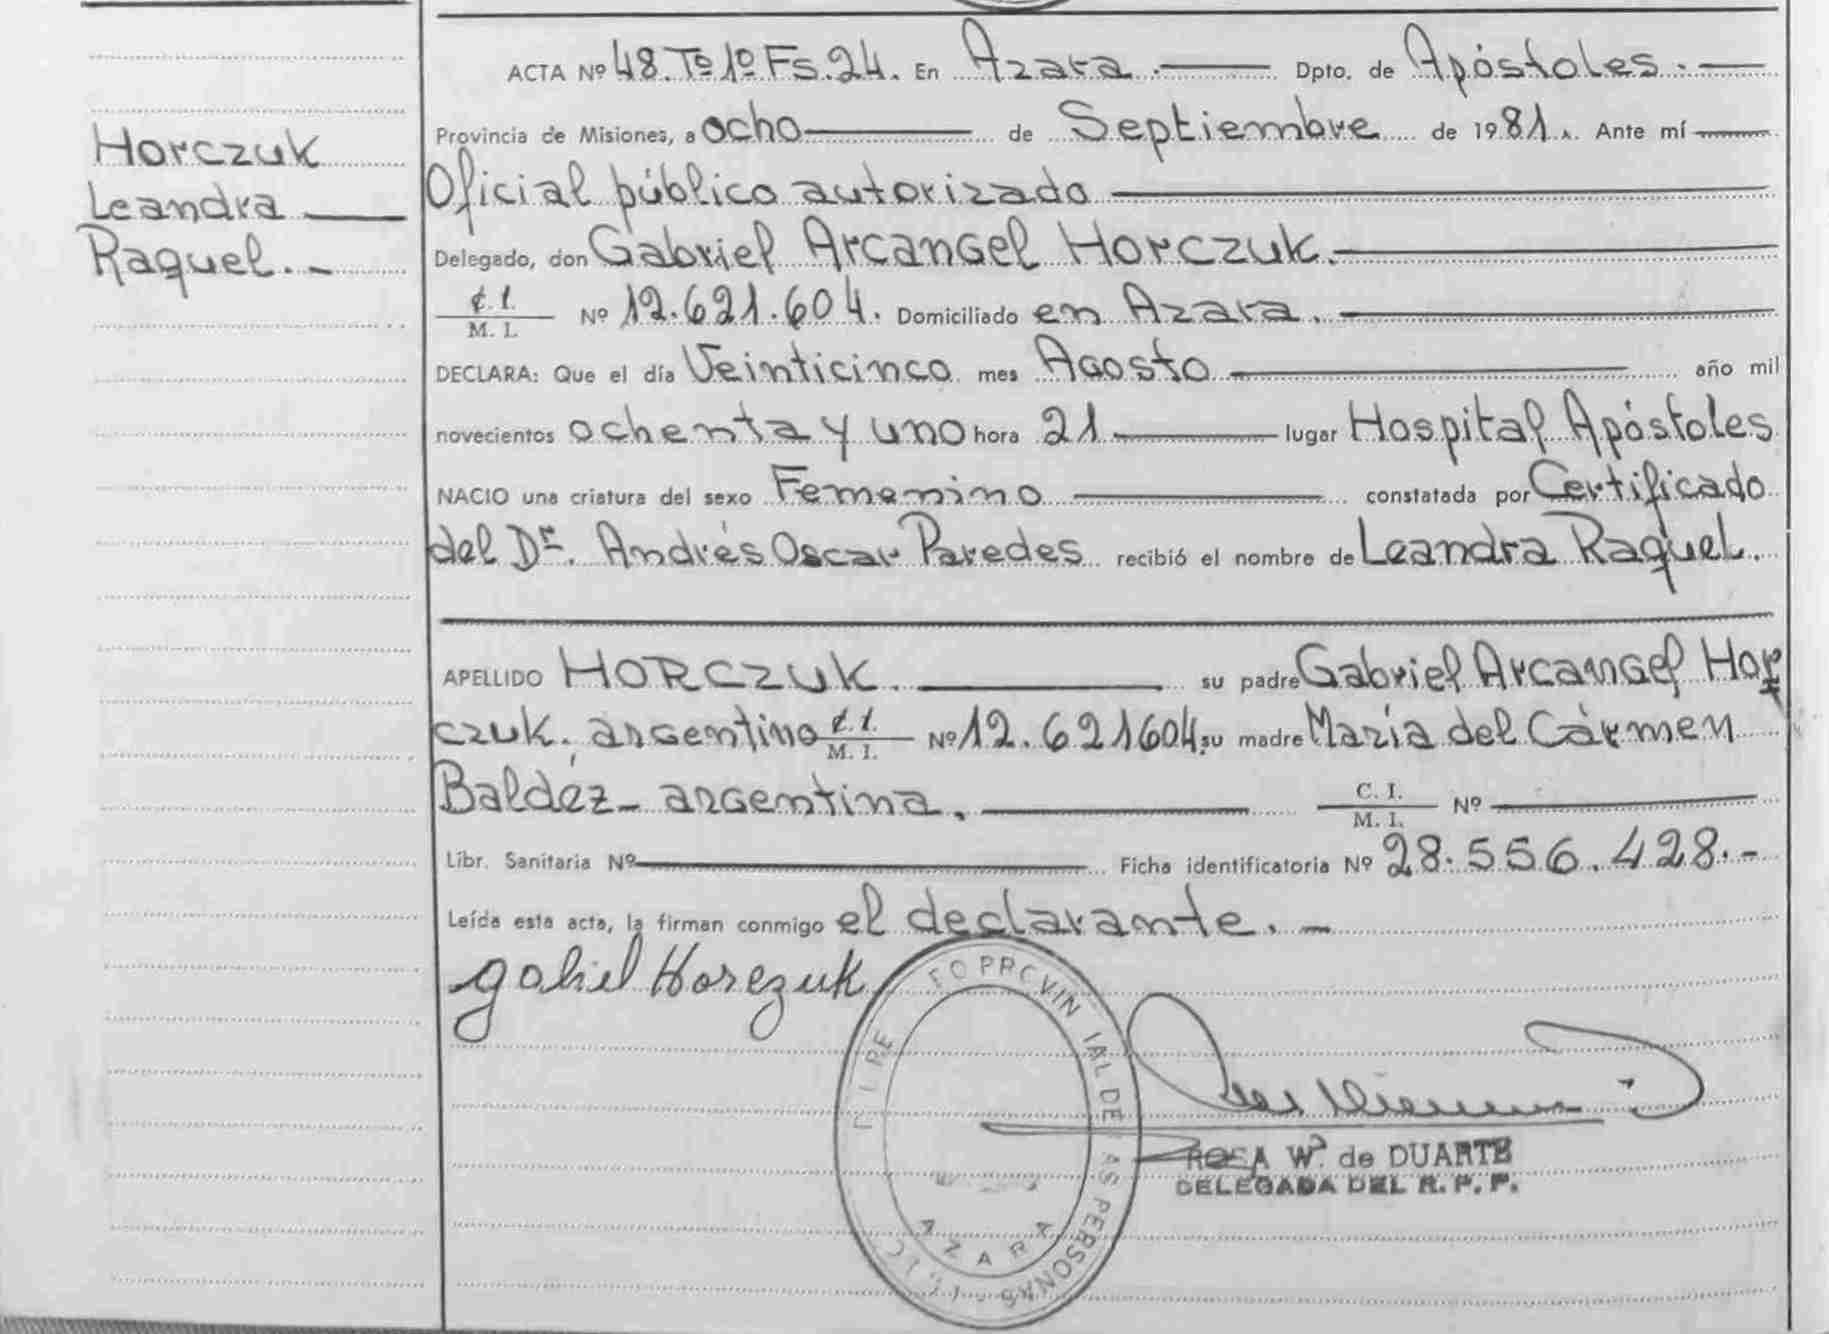 Horczuk
Leandra
Raquel.-
ACTA Nº 48.Tº1º Fs.24. En Azara. Dpto. de Apóstoles.
Provincia de Misiones, a ocho de Septiembre de 1981. Ante mí
Oficial público autorizado
Delegado, don Gabriel Arcangel Horczuk.
C.I. / M. I. Nº 12.621.604. Domiciliado en Azara.
DECLARA: Que el día Veinticinco mes Agosto año mil
novecientos ochenta y uno hora 21 lugar Hospital Apóstoles
NACIO una criatura del sexo Femenino constatada por Certificado
del Dr. Andrés Oscar Paredes recibió el nombre de Leandra Raquel.
APELLIDO HORCZUK. su padre Gabriel Arcangel Hor
czuk. argentino C.I. / M. I. Nº 12.621604. su madre María del Cármen
Baldéz- argentina. C. I. / M. I. Nº
Libr. Sanitaria Nº Ficha identificatoria Nº 28.556.428.-
Leída esta acta, la firman conmigo el declarante.-
gabriel Horczuk
PROVINCIAL DE LAS PERSONAS
AZARA
ROSA W. de DUARTE
DELEGADA DEL R. P. P.